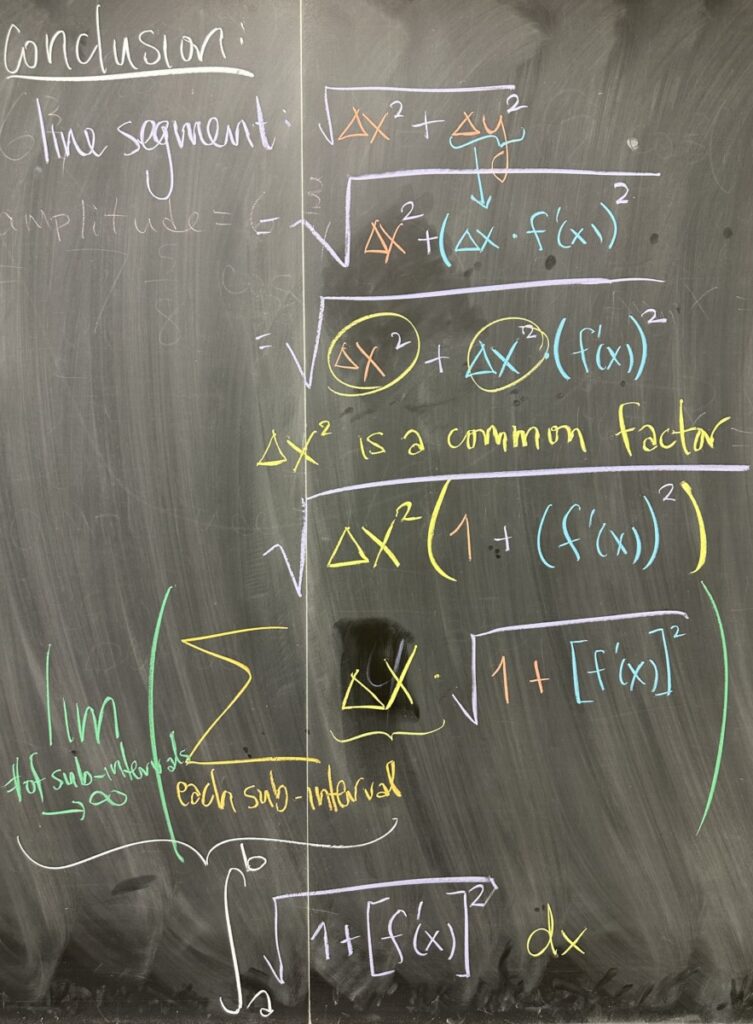 conclusion:
line segment: √(Δx² + Δy²)
amplitude = 6
√(Δx² + (Δx · f'(x))²)
= √(Δx² + Δx² · (f'(x))²)
Δx² is a common factor
√(Δx² (1 + (f'(x))²))
lim # of sub-intervals → ∞ ( Σ each sub-interval Δx · √(1 + [f'(x)]²) )
∫ₐᵇ √(1 + [f'(x)]²) dx